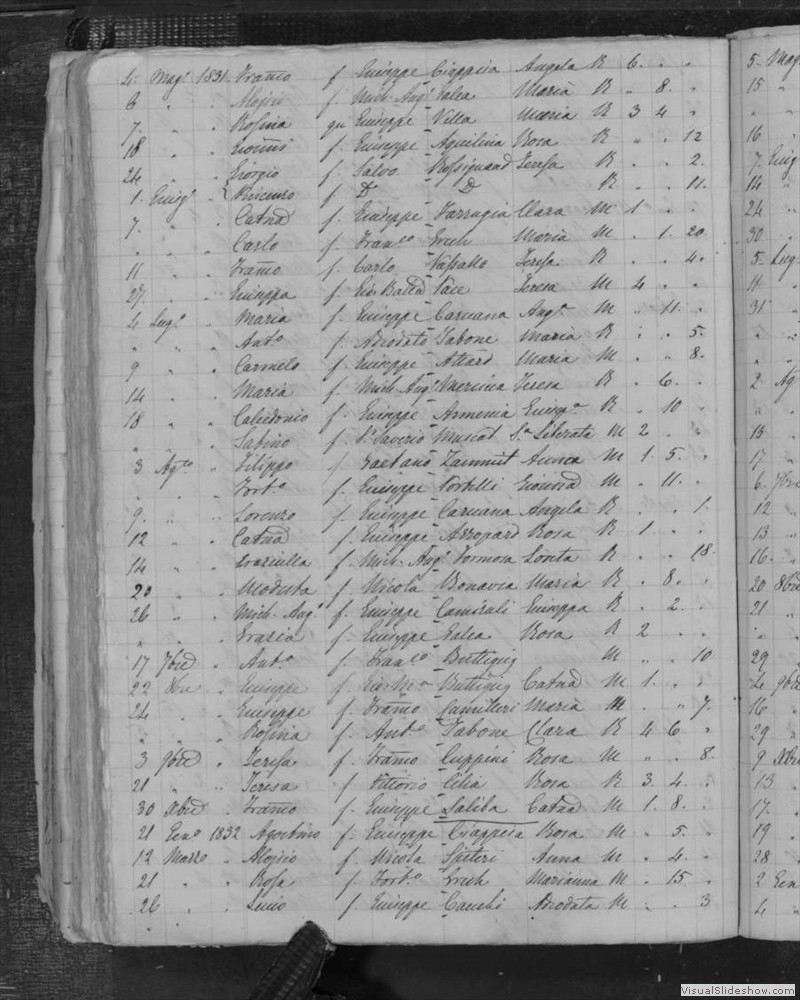 4. Mag.o 1831 Franco f Giuseppe Ciappisa Angela R 6 . .
6 " " Aloisio f. Mich. Ang.o Galea Maria R " 8. .
7 " " Rosina qu Giuseppe Villa Maria R 3 4 .
18 " " f. Giuseppe Aquilina Rosa R " . 12
24 " " Giorgio f. Salvo Rossignaud Teresa R . . 2.
1. Giug.o " Vincenzo f D.o D.o R . . 11.
7. " " Catna f. Giuseppe Farrugia Clara M 1 . .
" " Carlo f. Fran.co Grech Maria M . 1. 20
11 " " Franco f. Carlo Vassallo Teresa R . . 4.
27. " " Giuseppa f. Gio Batta Pace Teresa M 4 . .
4 Lug.o " Maria f. Giuseppe Caruana Ang.a M " 11. .
" " " Ant.o f. Adeodato Tabone Maria R . . 5.
9 " " Carmelo f. Giuseppe Attard Maria M . " 8.
14 " " Maria f. Mich. Ang.o Mercieca Teresa R . 6. .
18 " " Calcidonio f. Giuseppe Armenia Giusep.a R . 10 .
" " " Sabino f. S.r Saverio Muscat S.a Liberata M 2 . .
3 Ag.to " Filippo f Gaetano Zammit Aurea M 1. 5. .
" " " Fort.o f. Giuseppe Portelli M . 11. .
9. " " Lorenzo f. Giuseppe Caruana Angela R . . 1.
12 " " Catna f. Giuseppe Azzopard Rosa R 1 . .
14 " " Graziella f. Mich. Ang.o Formosa R . . 18.
20 " " Modesta f. Nicola Bonavia Maria R . 8. .
26 " " Mich. Ang.o f. Giuseppe Camisuli Giuseppa R . 2. .
" " " Grazia f. Giuseppe Galea Rosa R 2 . .
17 7bre " Ant.o f. Fran.co Buttigieg M " . 10
22 8bre " Giuseppe f. Gio M.a Buttigieg Catna M 1. . .
24 " " Giuseppe f. Franco Camilleri Maria M . " 7.
" " " Rosina f. Ant.o Tabone Clara R 4 6 .
3 9bre " Teresa f. Franco Cuppini Rosa M " . 8.
21 " " Teresa f. Vittorio Cilia Rosa R 3. 4. .
30 Xbre " Franco f. Giuseppe Saliba Catna M 1. 8. .
21 Gen.o 1832 Agostino f. Giuseppe Ciappisa Rosa M . 5. .
12 Marzo " Aloisio f. Nicola Spiteri Anna M . 4. .
21 " " Rosa f. Fort.o Grech Marianna M . 15. .
26 " " f. Giuseppe Cauchi Adeodata M . . 3
5 Mag
15 "
" "
16 "
7. Giug
14 "
24 "
30 "
5 Lug
11 "
31 "
" "
" "
2 Ag
" "
13 "
17 "
6. 7bre
12 "
13 "
16. "
20 8bre
21 "
" "
29 "
4 9bre
16 "
29 "
9 Xbre
13 "
17. "
19 "
28 "
2 Gen
4 "
VisualSlideshow.com